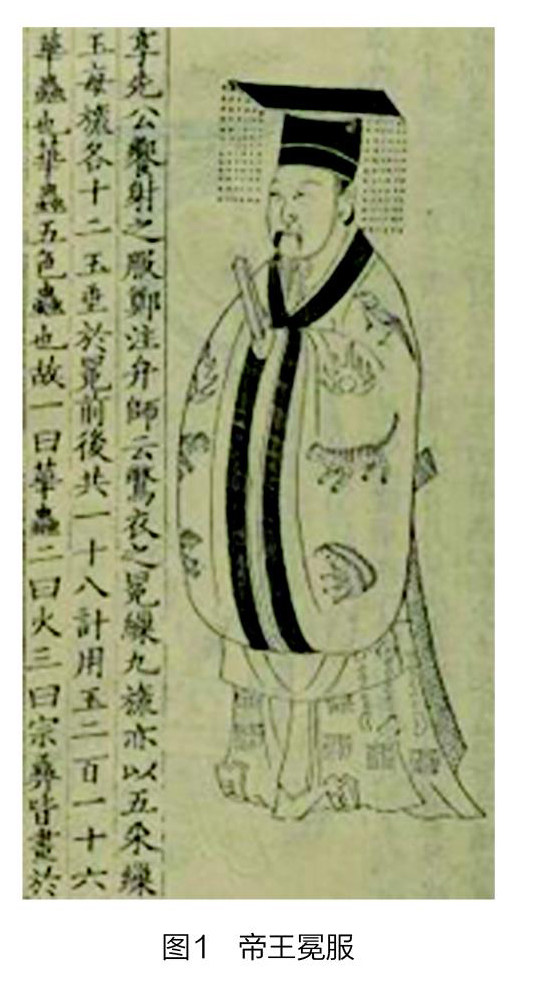 享先公饗射之服鄭注弁師云鷩衣之冕繅九旒亦以五采繅
玉每旒各十二玉垂於冕前後共一十八計用玉二百一十六
華蟲也華蟲五色蟲也故一曰華蟲二曰火三曰宗彝皆畫於
图1 帝王冕服